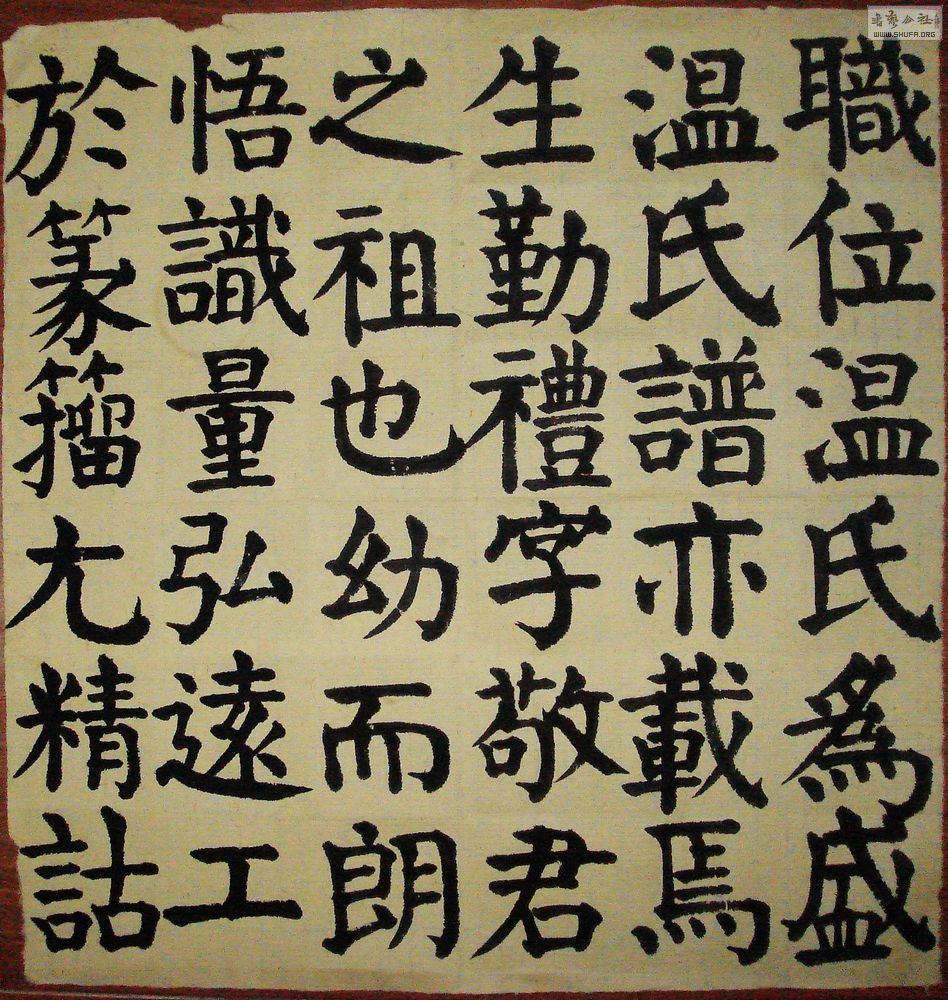 職位温氏爲盛
温氏譜亦載焉
生勤禮字敬君
之祖也幼而朗
悟識量弘遠工
於篆籀尤精詁
書藝公社
WWW.SHUFA.ORG